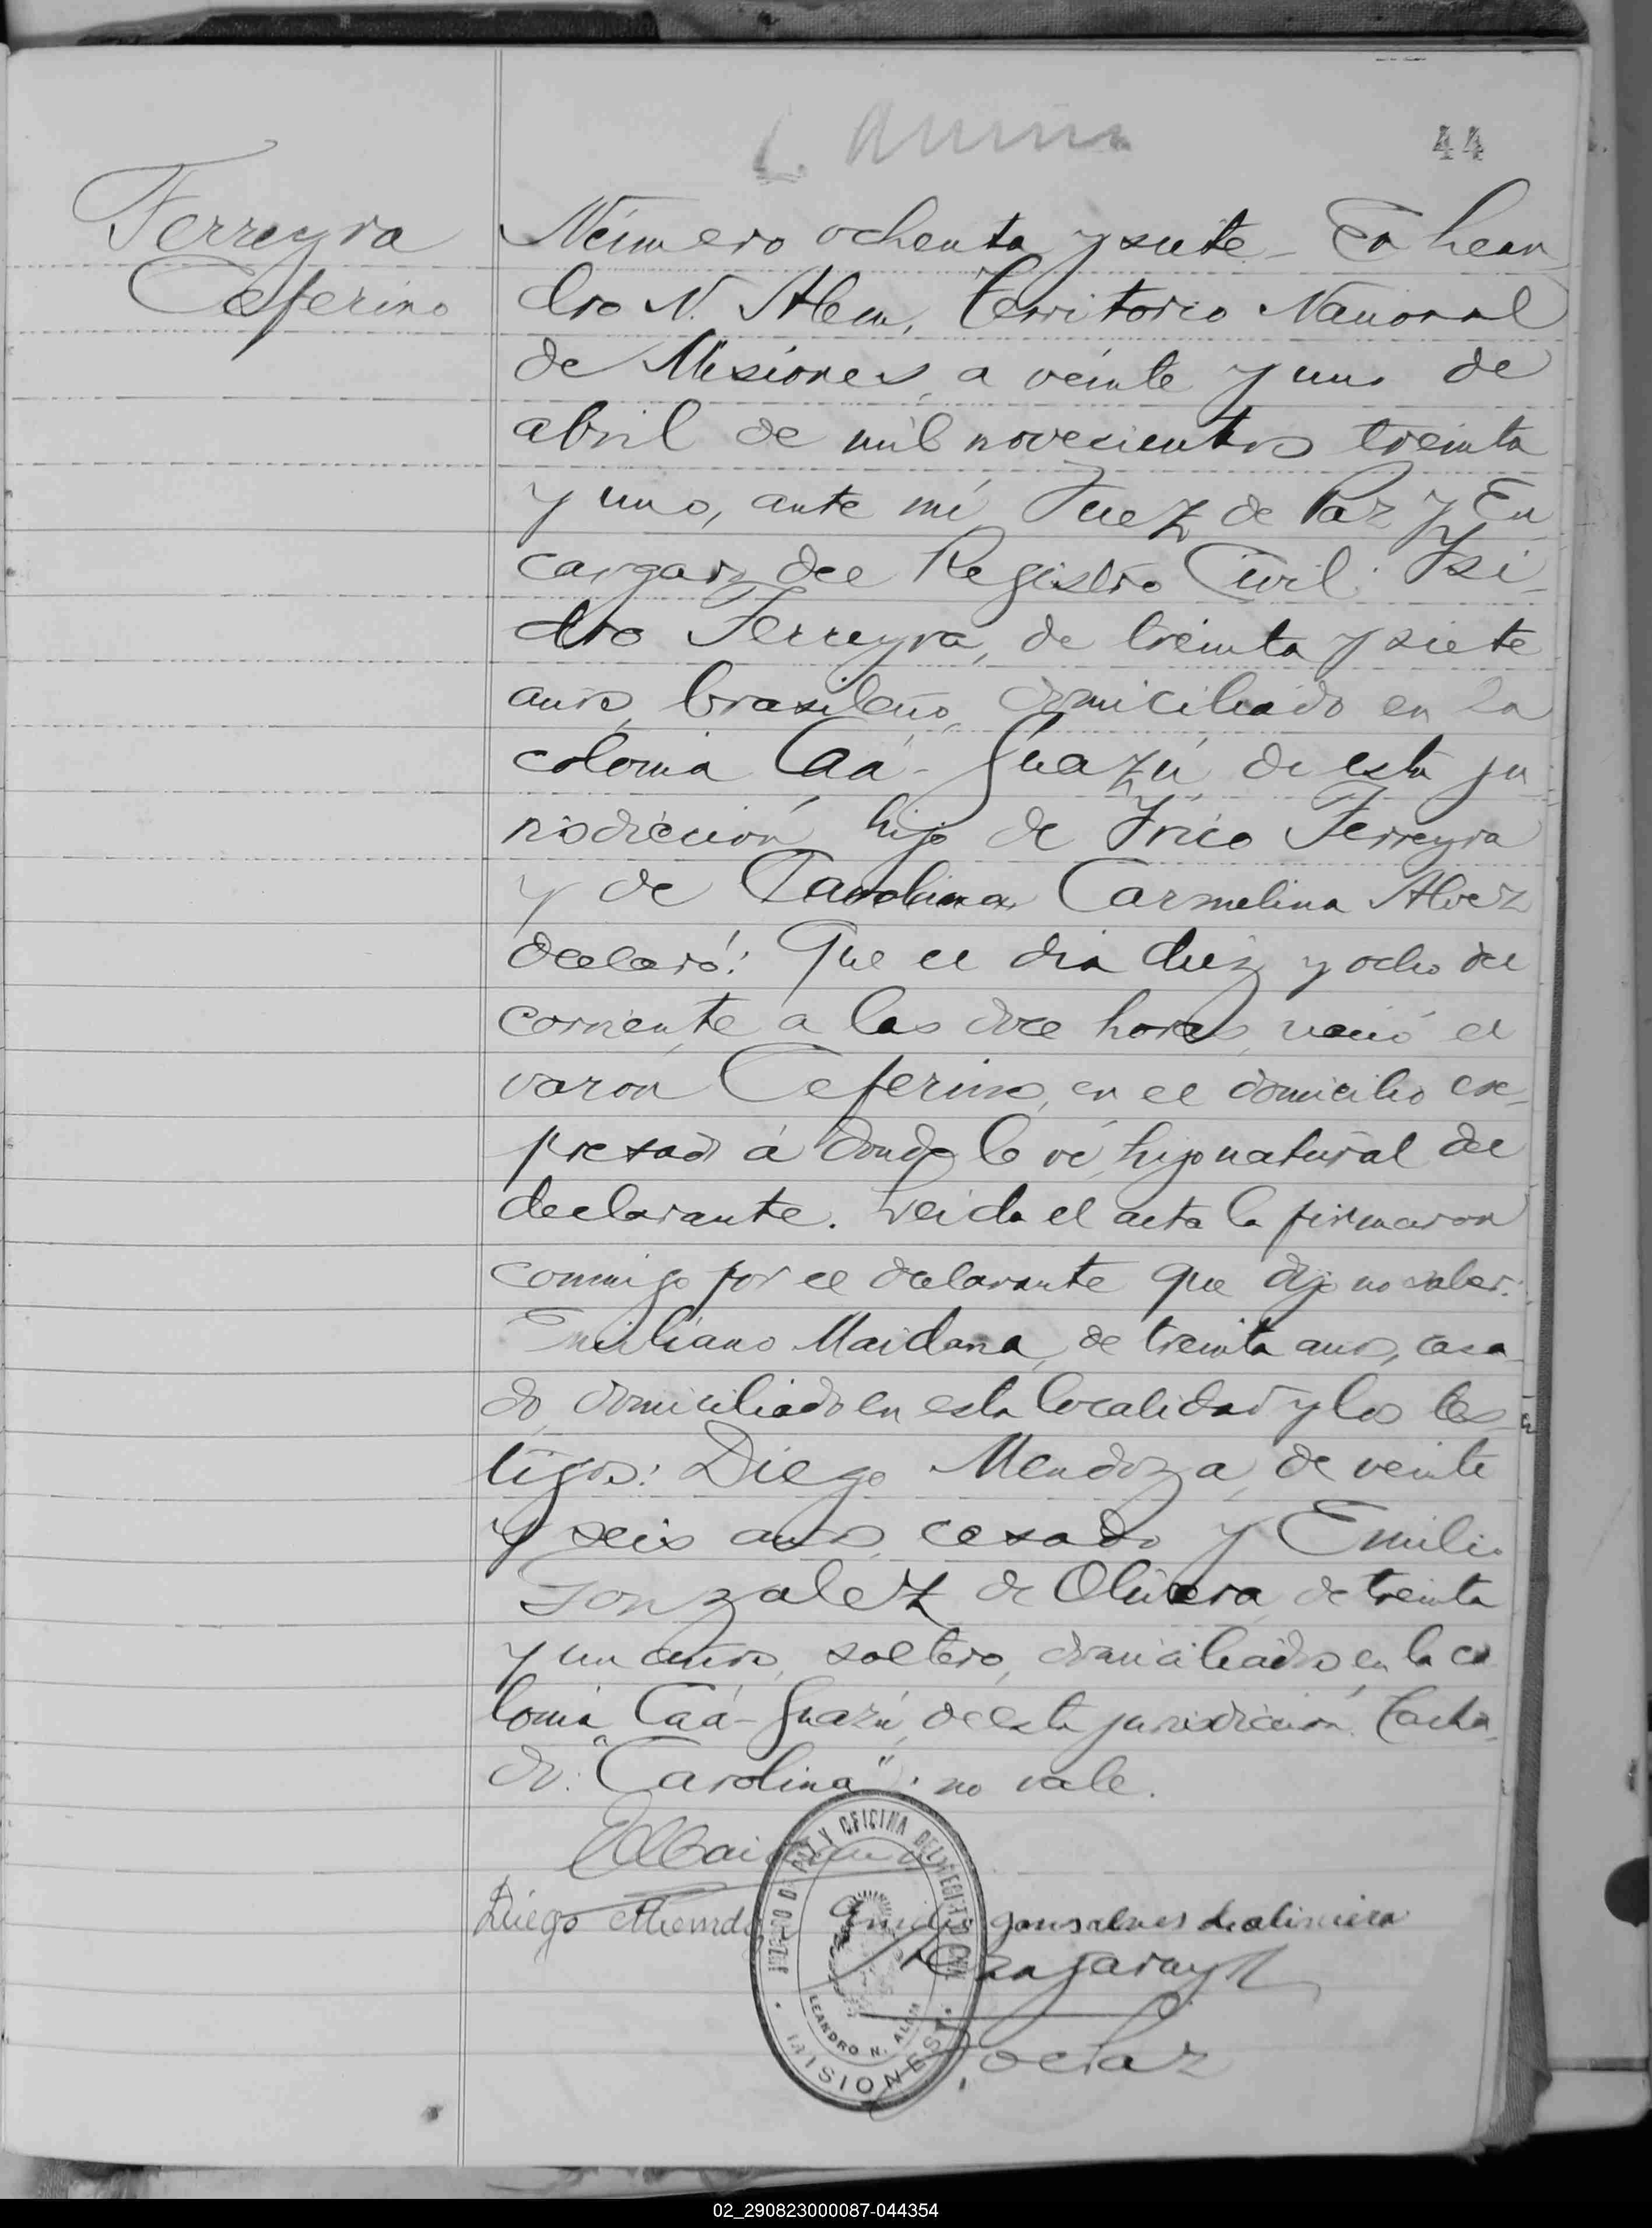 44
Ferreyra
Ceferino
Número ochenta y siete - En Lean
dro N. Alem, Territorio Nacional
de Misiones, a veinte y uno de
abril de mil novecientos treinta
y uno, ante mí, Juez de Paz y En
cargado del Registro Civil: Isi-
dro Ferreyra, de treinta y siete
años, brasileño, domiciliado en la
colonia Caá-Guazú, de esta ju
risdicción, hijo de Ferreyra
y de Carolina Carmelina Alvez
declaró: Que el día diez y ocho del
corriente, a las doce horas, nació el
varón Ceferino, en el domicilio ex-
presado á donde lo ví, hijo natural del
declarante. Leida el acta la firmaron
conmigo por el declarante que dijo no saber:
Emiliano Maidana, de treinta años, casa-
do, domiciliado en esta localidad y los tes-
tigos: Diego Mendoza, de veinte
y seis años, casado y Emilio
Gonzalez de Olivera, de treinta
y un años, soltero, domiciliados en la co
lonia Caá-Guazú, de esta jurisdicción. Tacha-
do: "Carolina": no vale.
EMaidana
Diego Mendoza gonsalves de oliveira
JUZGADO DE PAZ Y OFICINA DEL REGISTRO CIVIL
LEANDRO N. ALEM
MISIONES
02_290823000087-044354